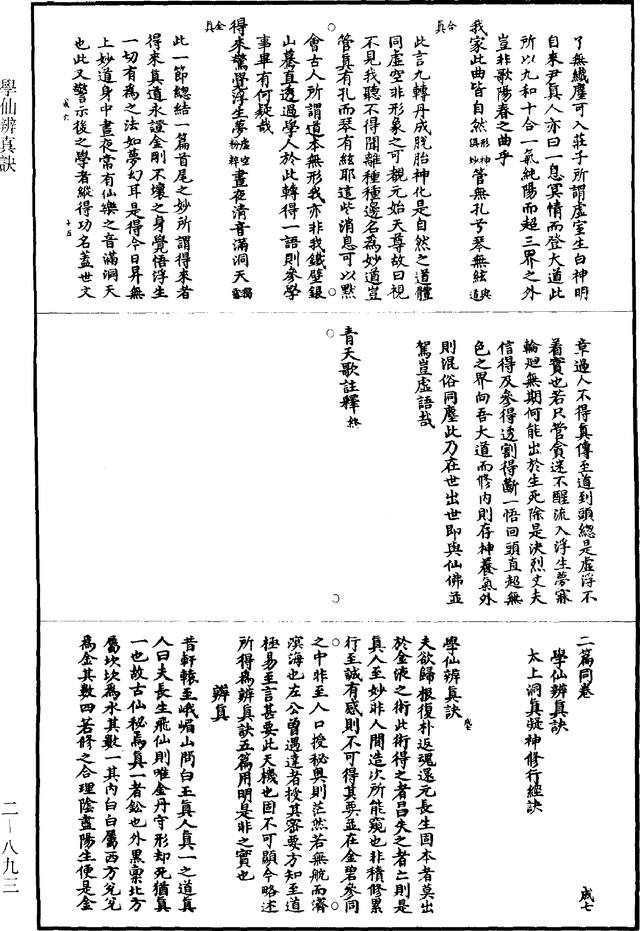 了無纖塵可入莊子所謂虛室生白神明
自來尹真人亦曰一息冥情而登大道此
所以九和十合一氣純陽而超三界之外
豈非歌陽春之曲乎
我家此曲皆自然形神俱妙管無孔兮琴無絃與道合真
此言九轉丹成脫胎神化是自然之道體
同虛空非形象之可覩元始天尊故曰視
不見我聽不得聞離種種邊名為妙道豈
管真有孔而琴有絃耶這些消息可以默
會古人所謂道本無形我亦非我鐵壁銀
山驀直透過學人於此轉得一語則參學
事畢有何疑哉
得來驚覺浮生夢虛空粉碎晝夜清音滿洞天獨露全真
此一節總結一篇首尾之妙所謂得來者
得來真道永證金剛不壞之身覺悟浮生
一切有為之法如夢幻耳是得今日昇無
上妙道身中晝夜常有仙樂之音滿洞天
也此又警示後之學者縱得功名蓋世文
成六 十五
章過人不得真傳至道到頭總是虛浮不
着實也若只管貪迷不醒流入浮生夢寐
輪迴無期何能出於生死除是決烈丈夫
信得及參得透割得斷一悟回頭直超無
色之界向吾大道而修內則存神養氣外
則混俗同塵此乃在世出世即與仙佛並
駕豈虛語哉
青天歌註釋終
二篇同卷 成七
學仙辨真訣
太上洞真凝神修行經訣
學仙辨真訣 成七
夫欲歸根復朴返魂還元長生固本者莫出
於金液之術此術得之者昌失之者亡則是
真人至妙非人間造次所能窺也非積修累
行至誠有感則不可得其要並在金碧參同
之中非至人口授秘奧則茫然若無航而濟
溟海也左公曾遇達者授其密要方知至道
極易至言甚要此天機也固不可顯今略述
所得為辨真訣五篇用明是非之寶也
辨真
昔軒轅至峨嵋山問白玉真人真一之道真
人曰夫長生飛仙則唯金丹守形却死猶真
一也故古仙秘焉真一者鉛也外黑稟北方
屬坎坎為水其數一其內白白屬西方兌兌
為金其數四若修之合理陰盡陽生便是金
學仙辨真訣
二-八九三